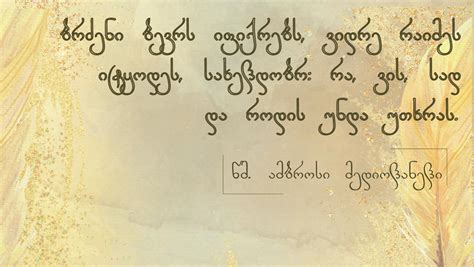 ბრძენი ბევრს იფიქრებს, ვიდრე რაიმეს
იტყოდეს, სახელდობრ: რა, ვის, სად
და როდის უნდა უთხრას.
წმ. ამბროსი მედიოლანელი